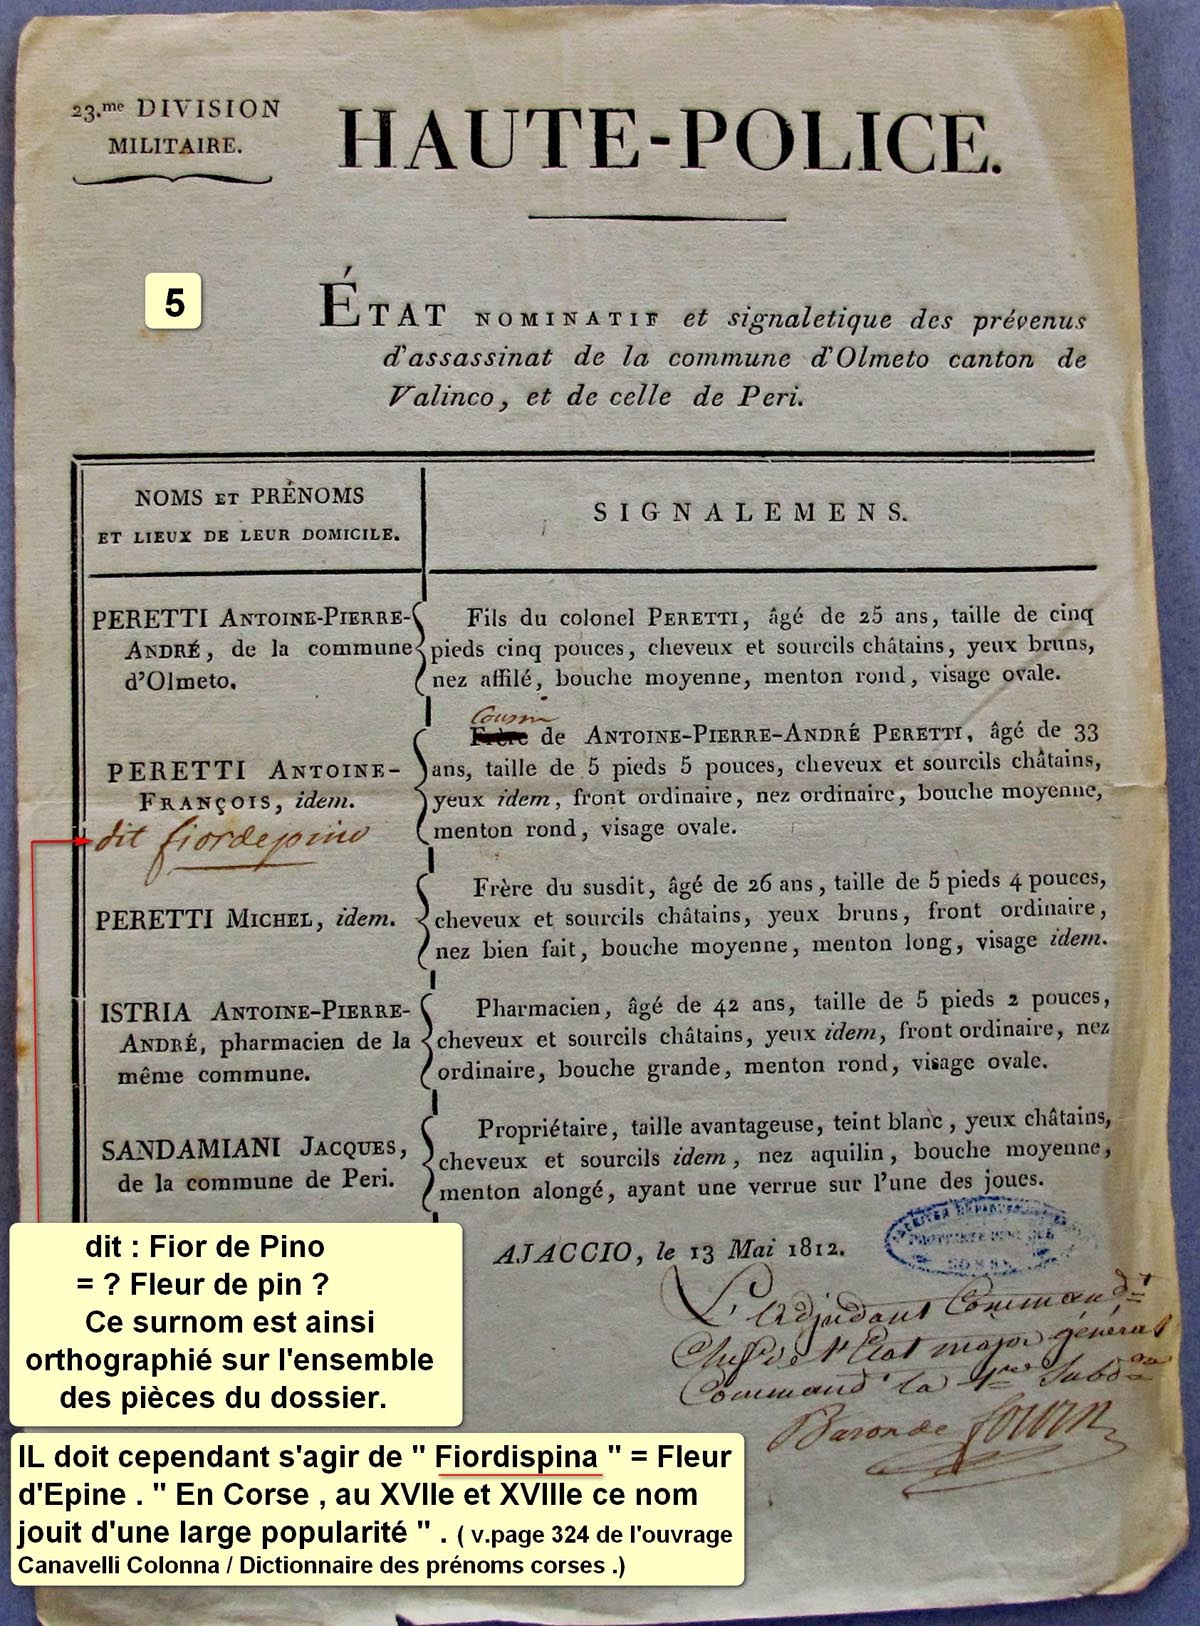 23.me DIVISION
MILITAIRE.
HAUTE-POLICE.
5
ÉTAT NOMINATIF et signaletique des prévenus
d'assassinat de la commune d'Olmeto canton de
Valinco, et de celle de Peri.
NOMS ET PRÉNOMS
ET LIEUX DE LEUR DOMICILE.
SIGNALEMENS.
PERETTI ANTOINE-PIERRE-
ANDRÉ, de la commune
d'Olmeto.
Fils du colonel PERETTI, âgé de 25 ans, taille de cinq
pieds cinq pouces, cheveux et sourcils châtains, yeux bruns,
nez affilé, bouche moyenne, menton rond, visage ovale.
PERETTI ANTOINE-
FRANÇOIS, idem.
dit fiordepino
Cousin
Frère de ANTOINE-PIERRE-ANDRÉ PERETTI, âgé de 33
ans, taille de 5 pieds 5 pouces, cheveux et sourcils châtains,
yeux idem, front ordinaire, nez ordinaire, bouche moyenne,
menton rond, visage ovale.
PERETTI MICHEL, idem.
Frère du susdit, âgé de 26 ans, taille de 5 pieds 4 pouces,
cheveux et sourcils châtains, yeux bruns, front ordinaire,
nez bien fait, bouche moyenne, menton long, visage idem.
ISTRIA ANTOINE-PIERRE-
ANDRÉ, pharmacien de la
même commune.
Pharmacien, âgé de 42 ans, taille de 5 pieds 2 pouces,
cheveux et sourcils châtains, yeux idem, front ordinaire, nez
ordinaire, bouche grande, menton rond, visage ovale.
SANDAMIANI JACQUES,
de la commune de Peri.
Propriétaire, taille avantageuse, teint blanc, yeux châtains,
cheveux et sourcils idem, nez aquilin, bouche moyenne,
menton alongé, ayant une verrue sur l'une des joues.
AJACCIO, le 13 Mai 1812.
L'adjudant Commandt
Chef de l'Etat major général
Command la 1re Subdon
Baron de
dit : Fior de Pino
= ? Fleur de pin ?
Ce surnom est ainsi
orthographié sur l'ensemble
des pièces du dossier.
IL doit cependant s'agir de " Fiordispina " = Fleur
d'Epine . " En Corse , au XVIIe et XVIIIe ce nom
jouit d'une large popularité " . ( v.page 324 de l'ouvrage
Canavelli Colonna / Dictionnaire des prénoms corses .)